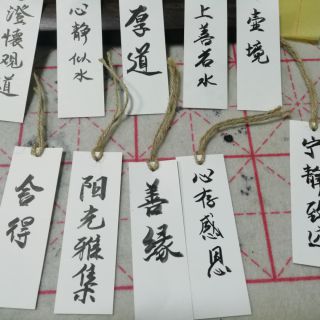 澄怀观道
心静似水
厚道
上善若水
壶境
舍得
阳光雅集
善缘
心存感恩
宁静致远